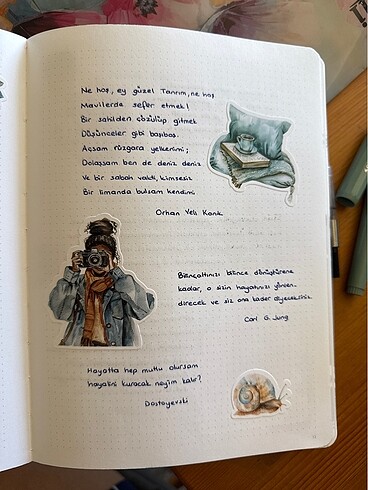 Ne hoş, ey güzel Tanrım, ne hoş
Mavilerde sefer etmek!
Bir sahilden çözülüp gitmek
Düşünceler gibi başıboş.
Açsam rüzgara yelkenimi;
Dolaşsam ben de deniz deniz
Ve bir sabah vakti, kimsesiz
Bir limanda bulsam kendimi.
Orhan Veli Kanık
Bilinçaltınızı bilince dönüştürene
kadar, o sizin hayatınızı yönlen-
direcek ve siz ona kader diyeceksiniz.
Carl G. Jung
Hayatta hep mutlu olursam
hayalini kuracak neyim kalır?
Dostoyevski